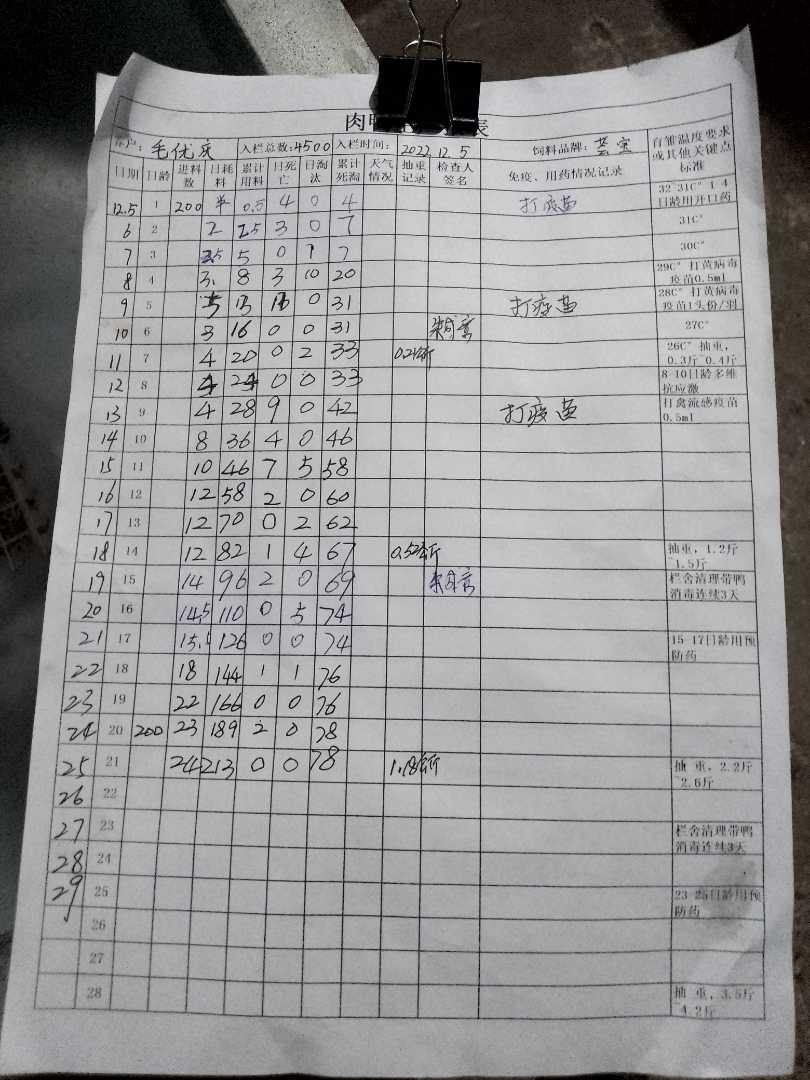 肉鸭 表
户: 毛优庆 入栏总数:4500 入栏时间: 2022.12.5 饲料品牌: 育雏温度要求或其他关键点标准
日期 日龄 进料数 日耗料 累计用料 日死亡 日淘汰 累计死淘 天气情况 抽重记录 检查人签名 免疫、用药情况记录
12.5 1 200 0.5 4 0 4 打疫苗 32-31C° 1-4日龄用开口药
6 2 2 2.5 3 0 7 31C°
7 3 2.5 5 0 1 7 30C°
8 4 3. 8 3 10 20 29C° 打黄病毒疫苗0.5ml
9 5 5 13 11 0 31 打疫苗 28C° 打黄病毒疫苗1头份/羽
10 6 3 16 0 0 31 27C°
11 7 4 20 0 2 33 0.21公斤 26C° 抽重,0.3斤-0.4斤
12 8 4 24 0 0 33 8-10日龄多维抗应激
13 9 4 28 9 0 42 打疫苗 打禽流感疫苗0.5ml
14 10 8 36 4 0 46
15 11 10 46 7 5 58
16 12 12 58 2 0 60
17 13 12 70 0 2 62
18 14 12 82 1 4 67 0.52公斤 抽重,1.2斤-1.5斤
19 15 14 96 2 0 69 栏舍清理带鸭消毒连续3天
20 16 14.5 110 0 5 74
21 17 15. 126 0 0 74 15-17日龄用预防药
22 18 18 144 1 1 76
23 19 22 166 0 0 76
24 20 200 23 189 2 0 78
25 21 24 213 0 0 78 1.18公斤 抽重,2.2斤-2.6斤
26 22
27 23 栏舍清理带鸭消毒连续3天
28 24
29 25 23-25日龄用预防药
26
27
28 抽重,3.5斤-4.2斤